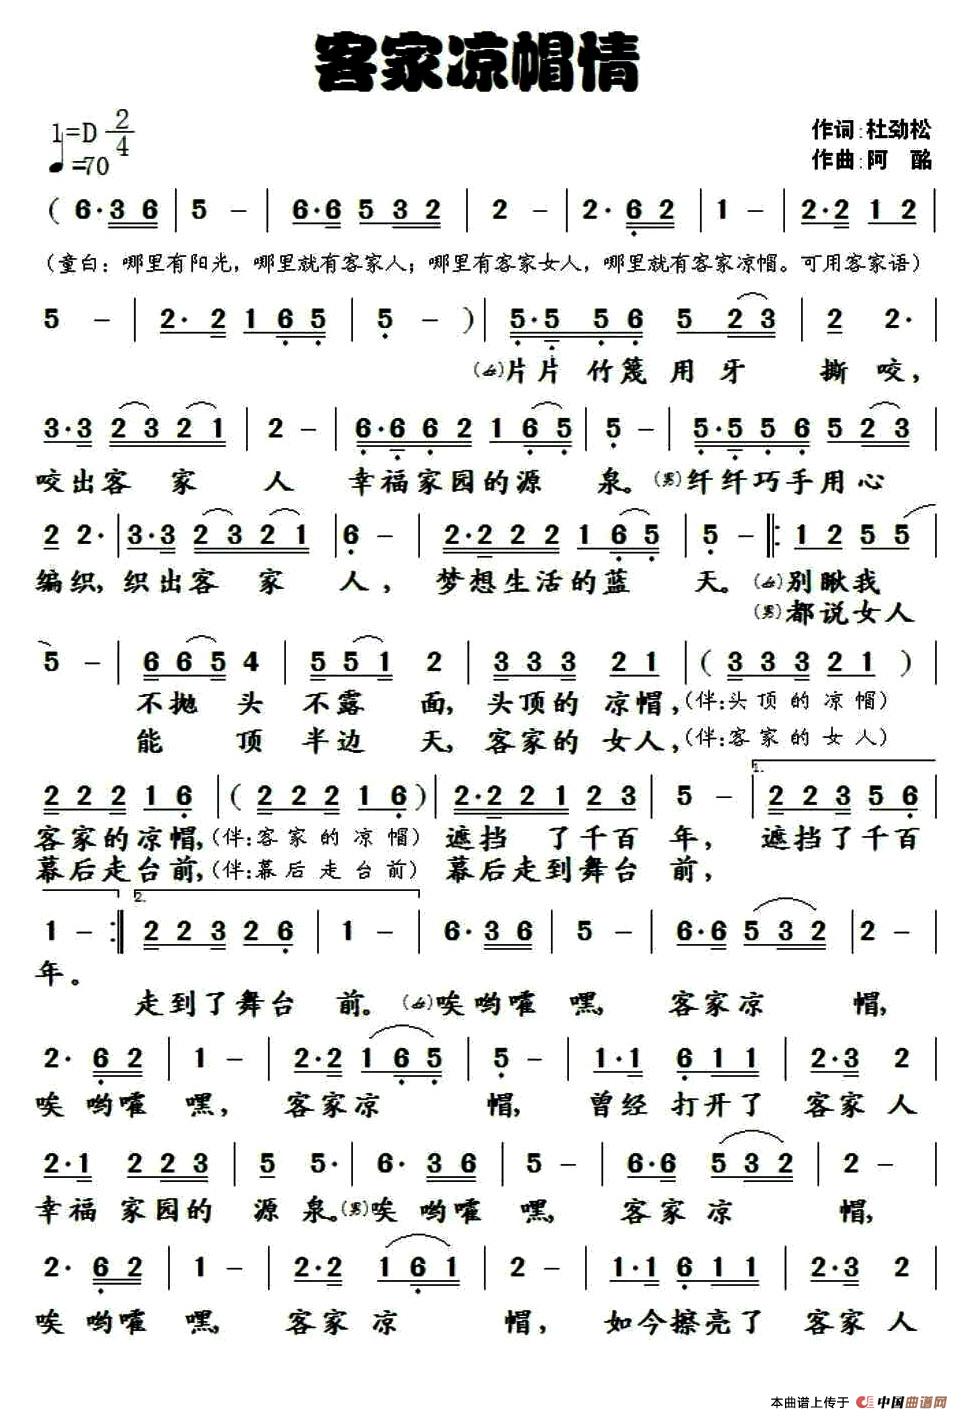 客家凉帽情
1=D 2/4
♩=70
作词:杜劲松
作曲:阿 酩
( 6·3 6 | 5 - | 6·6 5 3 2 | 2 - | 2·6 2 | 1 - | 2·2 1 2 |
(童白：哪里有阳光，哪里就有客家人；哪里有客家女人，哪里就有客家凉帽。可用客家语)
5 - | 2·2 1 6 5 | 5 - ) | 5·5 5 6 5 2 3 | 2 2· |
(女)片片竹篾用牙 撕咬，
3·3 2 3 2 1 | 2 - | 6·6 6 2 1 6 5 | 5 - | 5·5 5 6 5 2 3 |
咬出客 家 人 幸福家园的源 泉。(男)纤纤巧手用心
2 2· | 3·3 2 3 2 1 | 6 - | 2·2 2 2 1 6 5 | 5 - |: 1 2 5 5 |
编织，织出客 家 人， 梦想生活的蓝 天。(女)别瞅我
(男)都说女人
5 - | 6 6 5 4 | 5 5 1 2 | 3 3 3 2 1 | ( 3 3 3 2 1 ) |
不抛 头 不露 面，头顶的 凉帽，(伴:头 顶 的 凉 帽)
能 顶 半边 天，客家的 女人，(伴:客 家 的 女 人)
2 2 2 1 6 | ( 2 2 2 1 6 ) | 2·2 2 1 2 3 | 5 - | 1. 2 2 3 5 6 |
客家的凉帽，(伴:客 家 的 凉 帽) 遮挡 了千百 年， 遮挡了千百
幕后走台前，(伴:幕 后 走 台 前) 幕后走到舞台 前，
1 - :| 2. 2 2 3 2 6 | 1 - | 6·3 6 | 5 - | 6·6 5 3 2 | 2 - |
年。
走到了舞台 前。(女)唉哟嚯 嘿， 客家凉 帽，
2·6 2 | 1 - | 2·2 1 6 5 | 5 - | 1·1 6 1 1 | 2·3 2 |
唉 哟嚯 嘿， 客家凉 帽， 曾经 打开了 客家 人
2·1 2 2 3 | 5 5· | 6·3 6 | 5 - | 6·6 5 3 2 | 2 - |
幸福 家园的 源 泉。(男)唉 哟嚯 嘿， 客家 凉 帽，
2·6 2 | 1 - | 2·2 1 6 1 | 2 - | 1·1 6 1 1 | 2·3 2 |
唉 哟嚯 嘿， 客家 凉 帽， 如今擦亮了 客家 人
本曲谱上传于 中国曲谱网